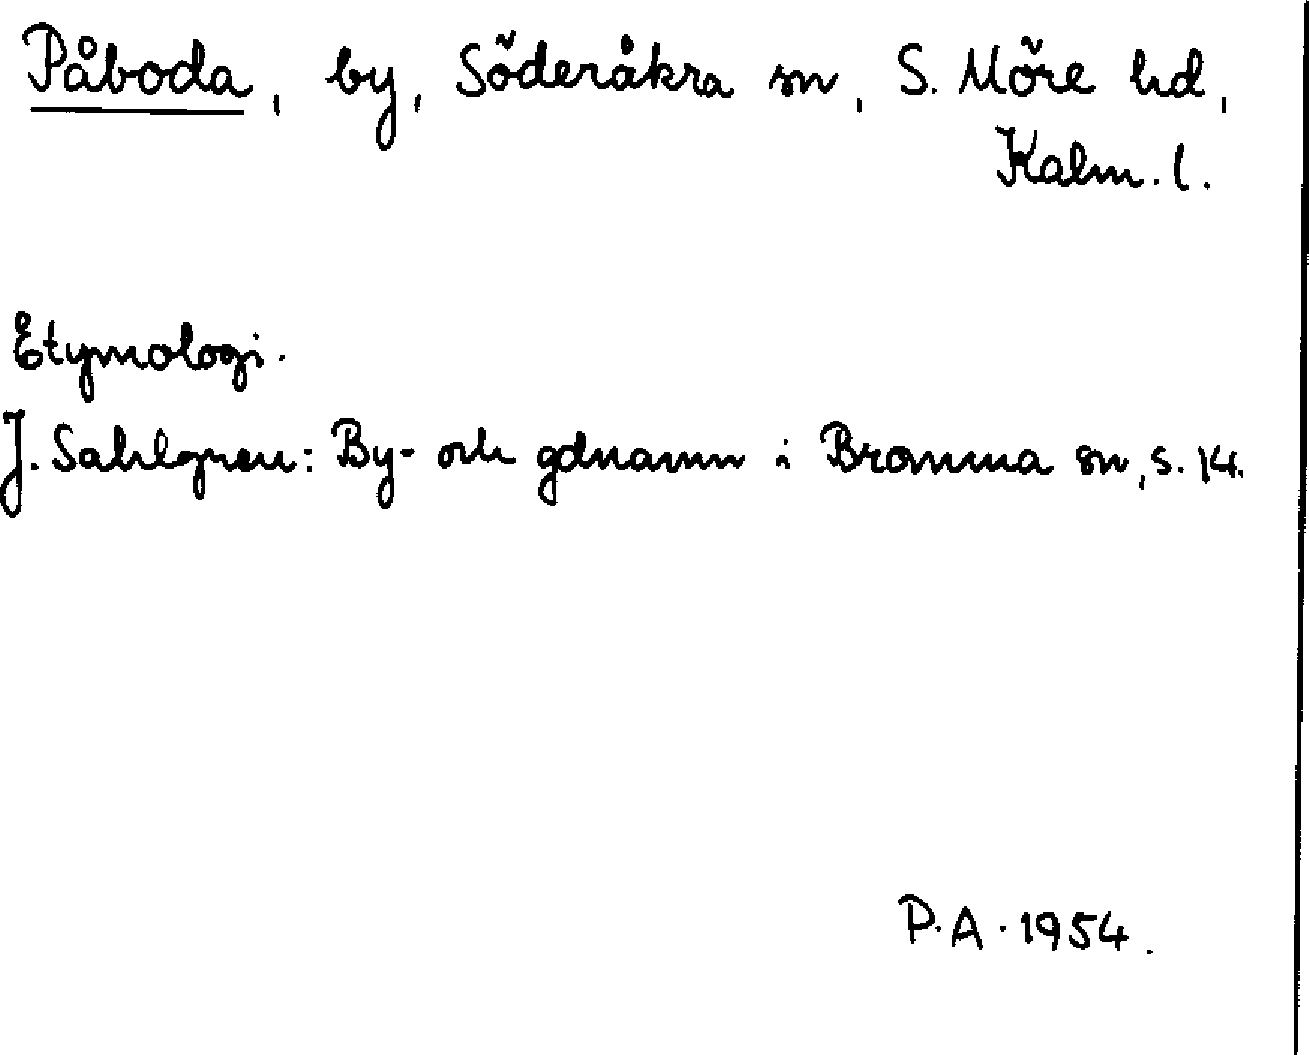 Påboda, by, Söderåkra sn, S. Möre hd,
Kalm. l.
Etymologi.
J. Sahlgren: By- och gdnamn i Bromma sn, s. 14.
P.A. 1954.